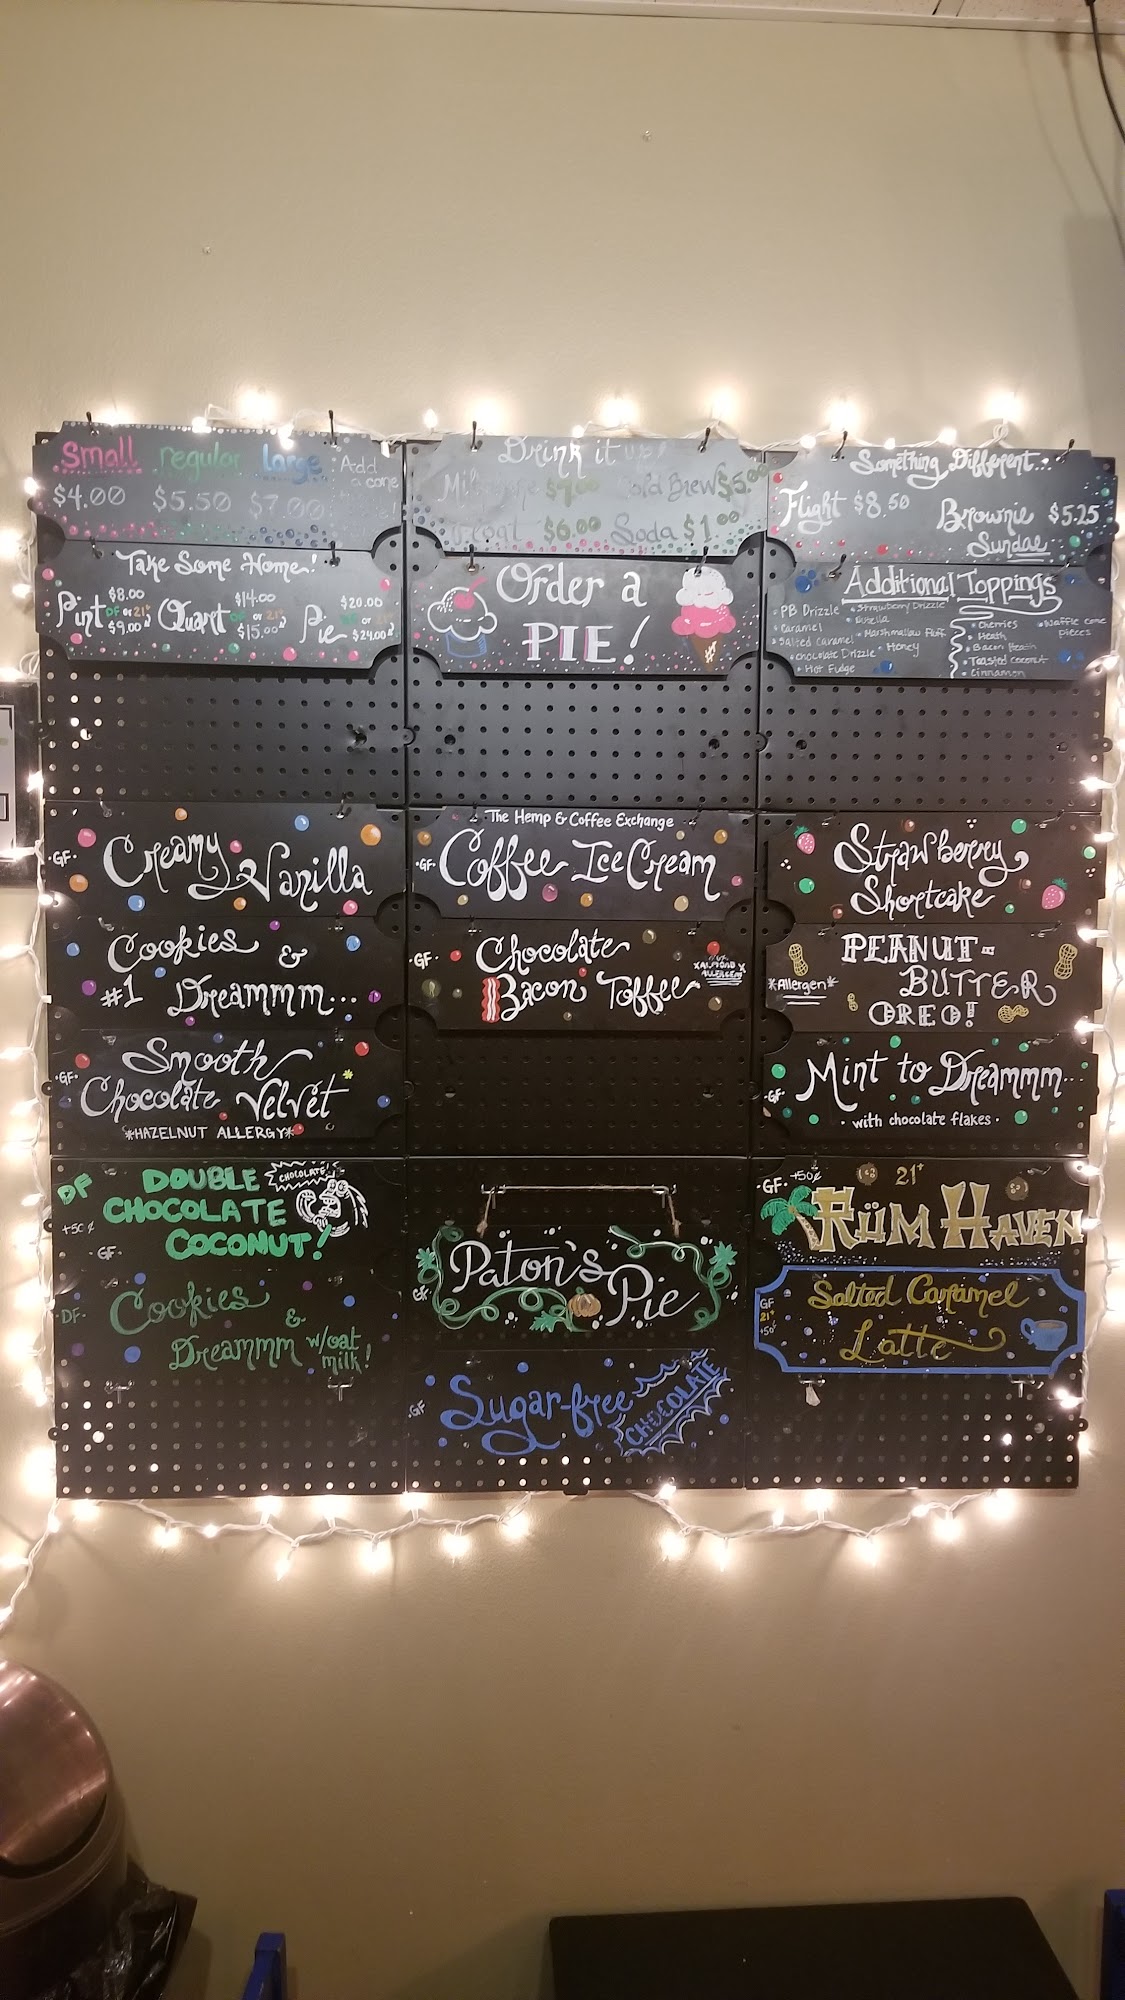 Small regular Large Add
a cone
$4.00 $5.50 $7.00
Drink it up!
$7.00 Cold Brew $5.00
$6.00 Soda $1.00
Something Different...
Flight $8.50
Brownie $5.25
Sundae
Take Some Home!
Pint $8.00 DF or 21+ $9.00
Quart $14.00 DF or 21+ $15.00
Pie $20.00 or $24.00
Order a
PIE!
Additional Toppings
• PB Drizzle
• Caramel
• Salted Caramel
• Chocolate Drizzle
• Hot Fudge
• Strawberry Drizzle
• Nutella
• Marshmallow Fluff
• Honey
• Cherries
• Heath
• Bacon Heath
• Toasted coconut
• Cinnamon
• Waffle cone
pieces
·GF· Creamy
Vanilla
· The Hemp & Coffee Exchange
·GF· Coffee Ice Cream
Strawberry
Shortcake
Cookies &
#1 Dreammm...
·GF· Chocolate
Bacon Toffee
ALLERGEN
*Allergen*
PEANUT-
BUTTER
OREO!
·GF· Smooth
Chocolate Velvet
*HAZELNUT ALLERGY*
·GF· Mint to Dreammm...
· with chocolate flakes ·
DF DOUBLE
CHOCOLATE!
CHOCOLATE
+50¢
·GF· COCONUT!
·GF· +50¢ 21+
RUM HAVEN
·DF· Cookies &
Dreammm w/oat
milk!
GF Paton's
Pie
GF
21+
+50¢
Salted Caramel
Latte
·GF Sugar-free
CHOCOLATE